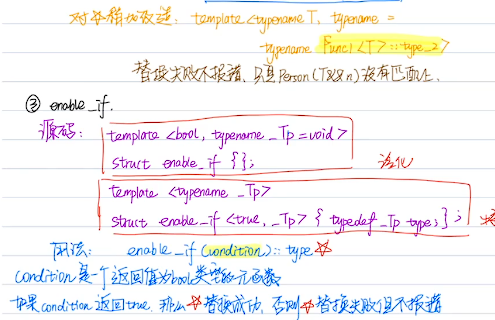 对本稍加改造: template <typename T, typename =
typename Func1<T>::type_2>
替换失败不报错, 只是Person(T&&n)没有匹配上.
③ enable_if.
源码: template <bool, typename _Tp = void>
struct enable_if {}; 泛化
template <typename _Tp>
struct enable_if <true, _Tp> { typedef _Tp type; };
用法: enable_if (condition) :: type ☆
condition是一个返回值为bool类型的元函数
如果condition返回true, 那么☆替换成功, 否则☆替换失败但不报错